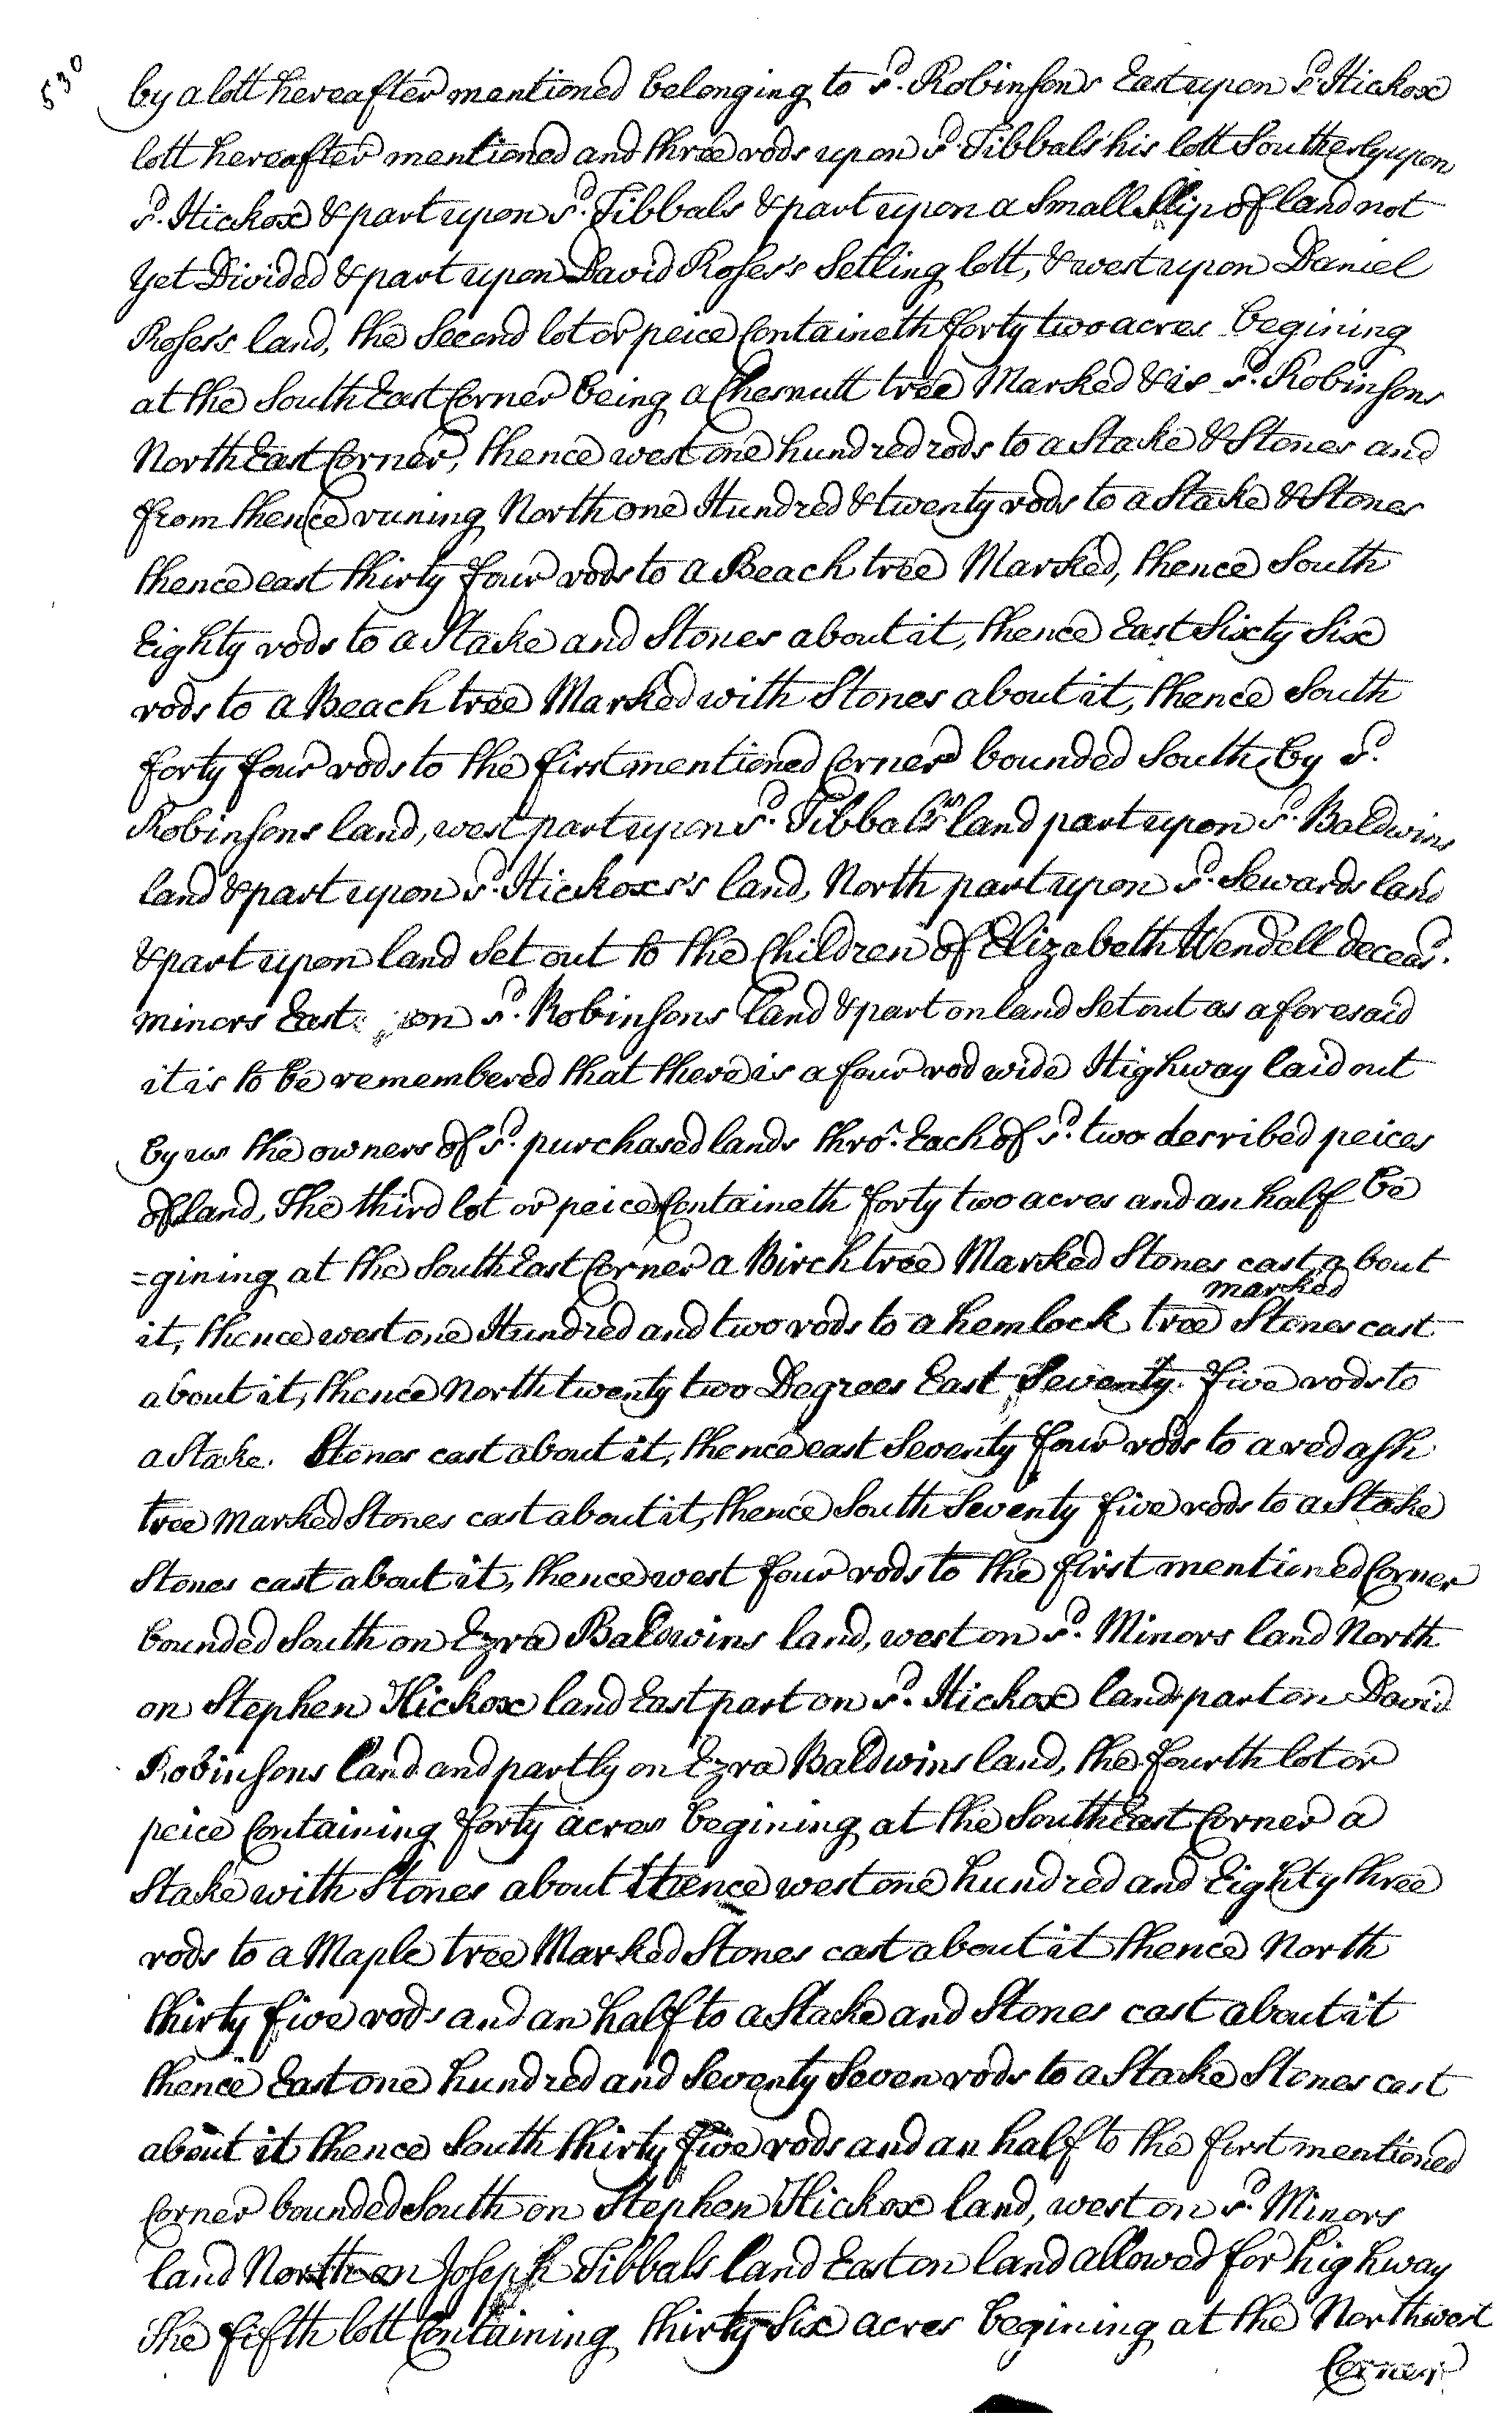 530
by a lott hereafter mentioned belonging to sd. Robinsons East upon sd. Hickox
lott hereafter mentioned and three rods upon sd. Tibbals his lott Southerly upon
sd. Hickox & part upon sd. Tibbals & part upon a Small Slip of land not
yet Divided & part upon David Roses's Setling lott, & west upon Daniel
Roses's land, the Second lot or peice Containeth forty two acres begining
at the South East Corner being a Chesnutt tree Marked & is sd. Robinsons
North East Corner, thence west one hundred rods to a Stake & Stones and
from thence runing North one Hundred & twenty rods to a Stake & Stones
thence east thirty four rods to a Beach tree Marked, thence South
Eighty rods to a Stake and Stones about it, thence East Sixty Six
rods to a Beach tree Marked with Stones about it, thence South
forty four rods to the first mentioned Corner bounded South by sd.
Robinsons land, west part upon sd. Tibbals's land part upon sd. Baldwins
land & part upon sd. Hickoxs's land, North part upon sd. Sewards land
& part upon land Set out to the Children of Elizabeth Wendell deceasd.
minors East on sd. Robinsons land & part on land Set out as aforesaid
it is to be remembered that there is a four rod wide Highway laid out
by us the owners of sd. purchased lands thro. Each of sd. two derribed peices
of land, The third lot or peice Containeth forty two acres and an half be
=gining at the South East Corner a Birch tree Marked Stones cast about
it, thence west one Hundred and two rods to a hemlock tree marked Stones cast
about it, thence North twenty two Degrees East Seventy five rods to
a Stake. Stones cast about it, thence east Seventy four rods to a red ash
tree marked Stones cast about it, thence South Seventy five rods to a Stake
Stones cast about it, thence west four rods to the first mentioned Corner
bounded South on Ezra Baldwins land, west on sd. Minors land North
on Stephen Hickox land East part on sd. Hickox land part on David
Robinsons land and partly on Ezra Baldwins land, the fourth lot or
peice Containing forty acres begining at the South East Corner a
Stake with Stones about thence west one hundred and Eighty three
rods to a Maple tree Marked Stones cast about it thence North
thirty five rods and an half to a Stake and Stones cast about it
thence East one hundred and Seventy Seven rods to a Stake Stones cast
about it thence South thirty five rods and an half to the first mentioned
Corner bounded South on Stephen Hickox land, west on sd. Minors
land North on Joseph Tibbals land East on land allowed for highway
The fifth lott Containing thirty Six acres begining at the Northwest
Corner